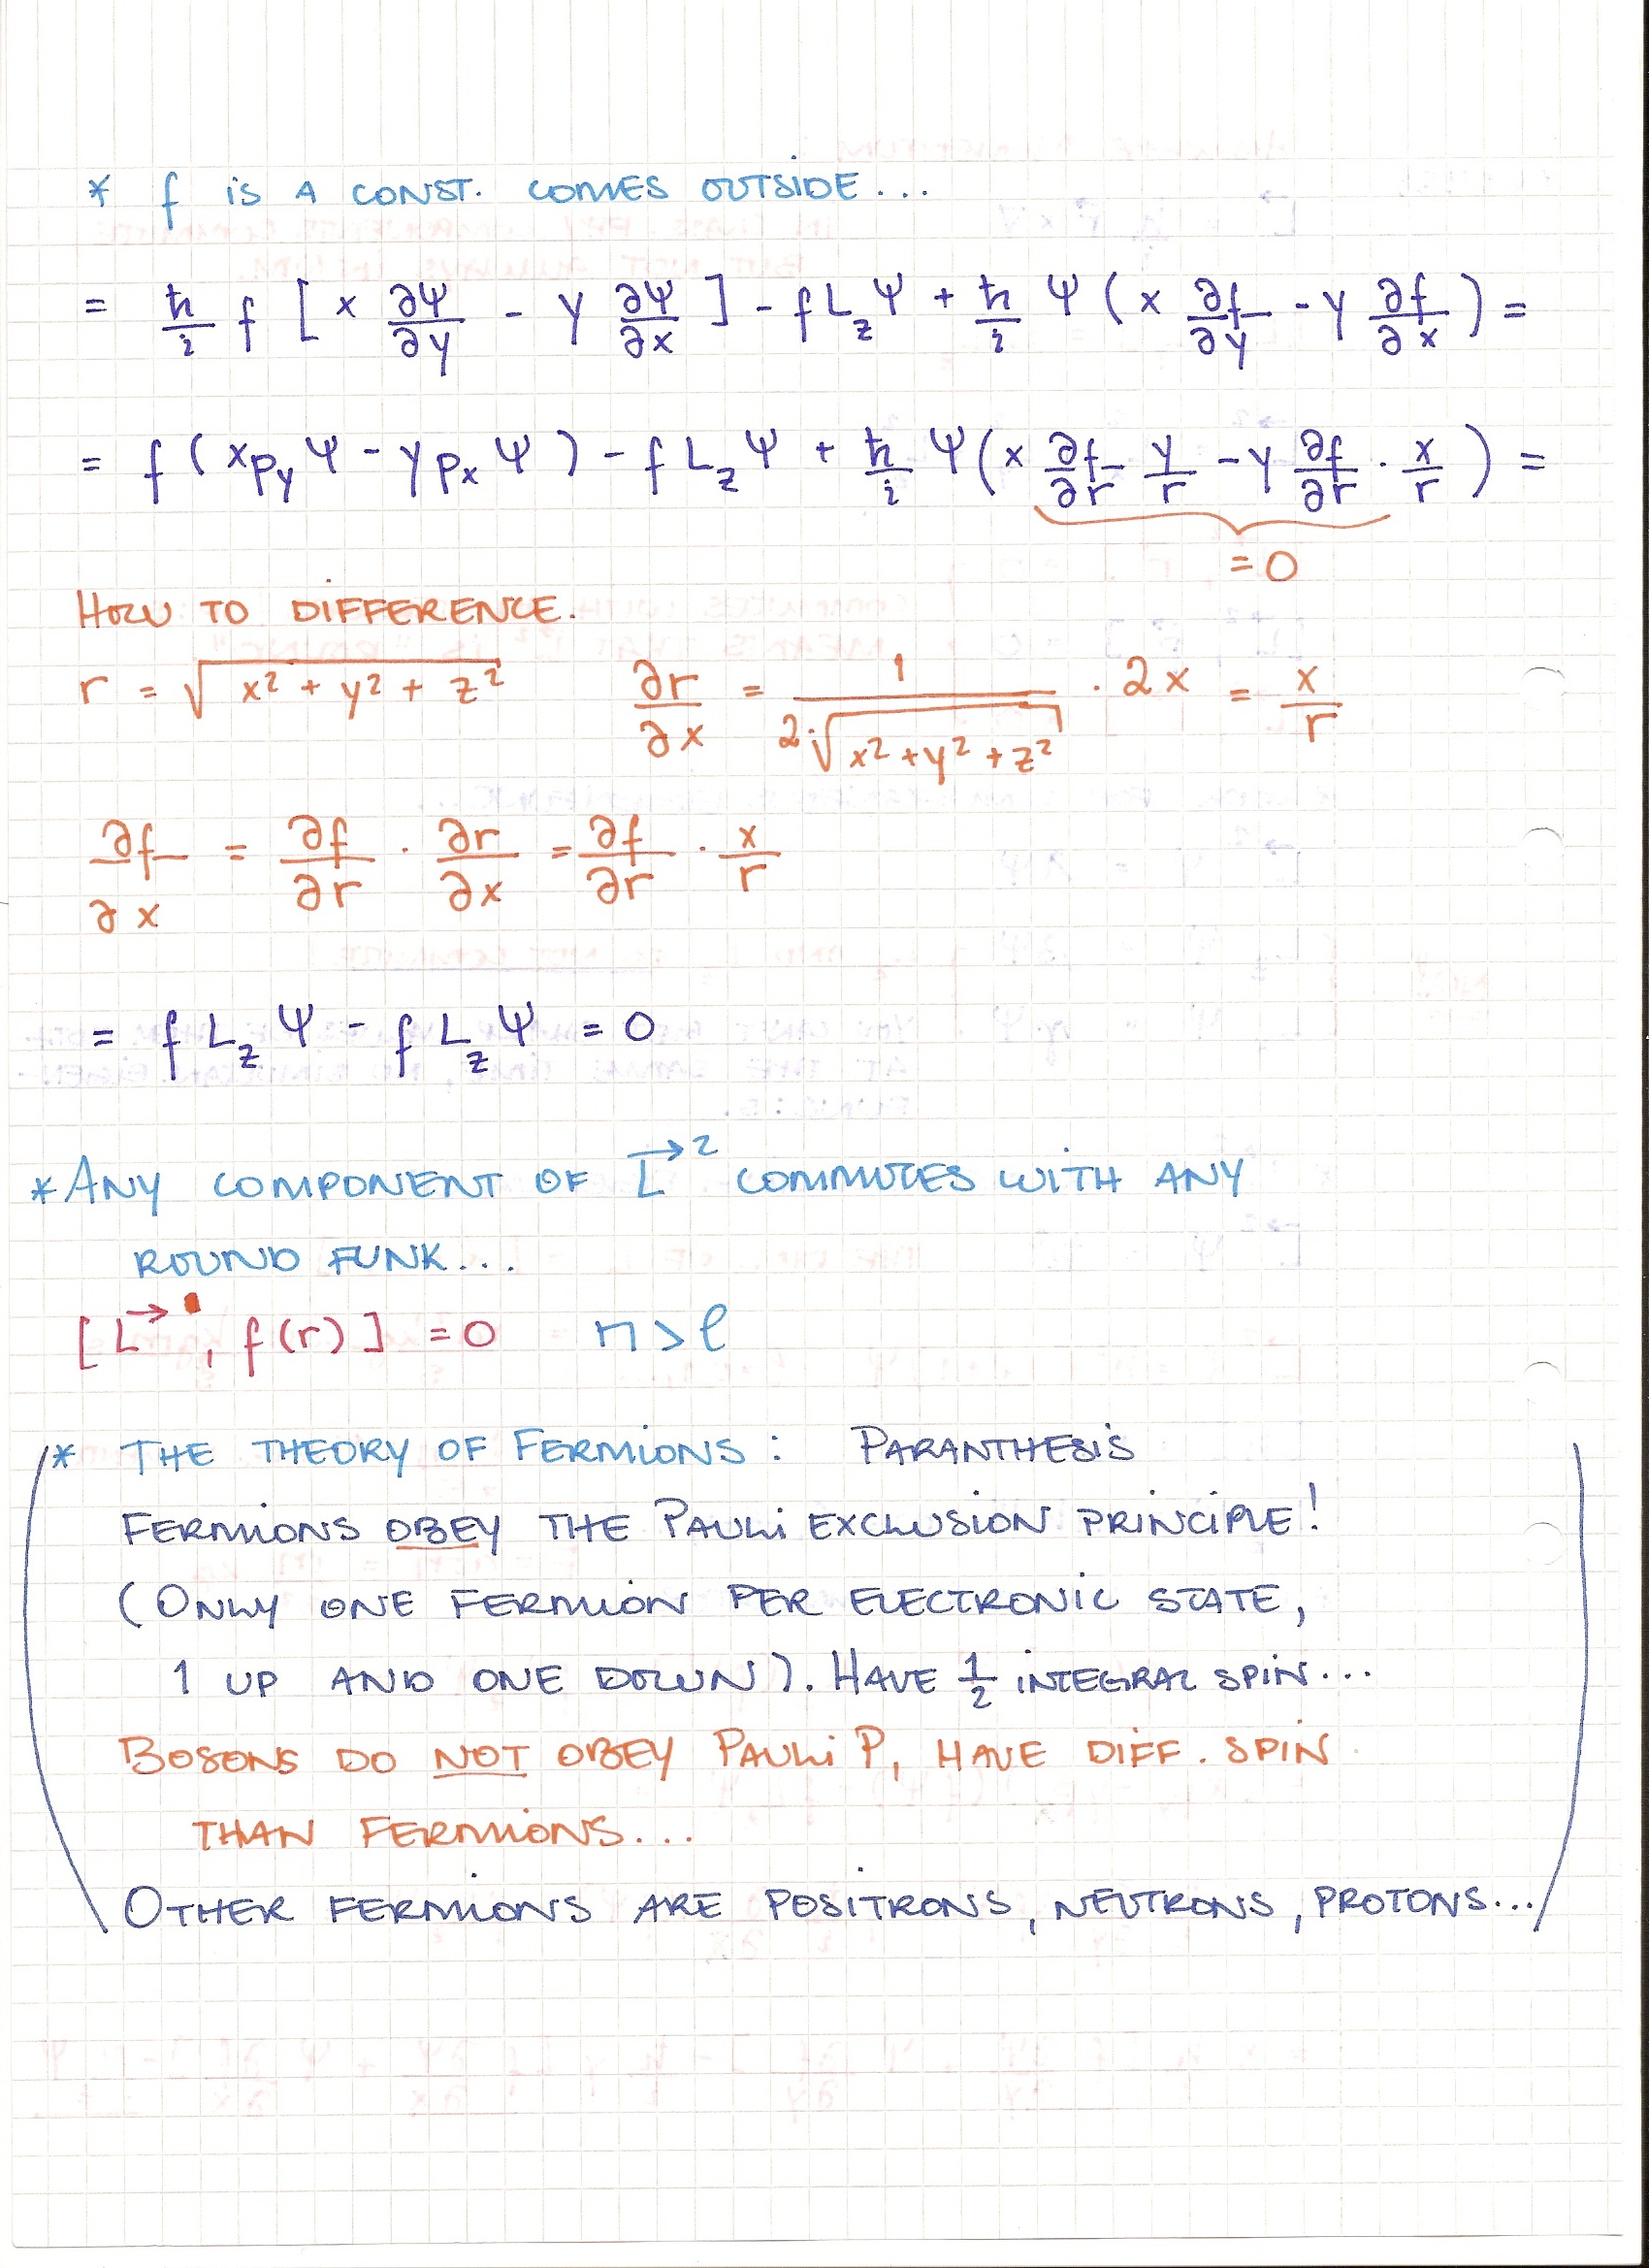 * f IS A CONST. COMES OUTSIDE...
= ħ/i f [ x ∂Ψ/∂y - y ∂Ψ/∂x ] - f L_z Ψ + ħ/i Ψ ( x ∂f/∂y - y ∂f/∂x ) =
= f ( x p_y Ψ - y p_x Ψ ) - f L_z Ψ + ħ/i Ψ ( x ∂f/∂r y/r - y ∂f/∂r · x/r ) =
= 0
HOW TO DIFFERENCE.
r = √(x² + y² + z²)    ∂r/∂x = 1/(2·√(x² + y² + z²)) · 2x = x/r
∂f/∂x = ∂f/∂r · ∂r/∂x = ∂f/∂r · x/r
= f L_z Ψ - f L_z Ψ = 0
* ANY COMPONENT OF L⃗² COMMUTES WITH ANY
ROUND FUNK...
[ L⃗ , f(r) ] = 0    n > ℓ
(* THE THEORY OF FERMIONS : PARANTHESIS
FERMIONS OBEY THE PAULI EXCLUSION PRINCIPLE!
(ONLY ONE FERMION PER ELECTRONIC STATE,
1 UP AND ONE DOWN). HAVE 1/2 INTEGRAL SPIN...
BOSONS DO NOT OBEY PAULI P, HAVE DIFF. SPIN
THAN FERMIONS...
OTHER FERMIONS ARE POSITRONS, NEUTRONS, PROTONS...)